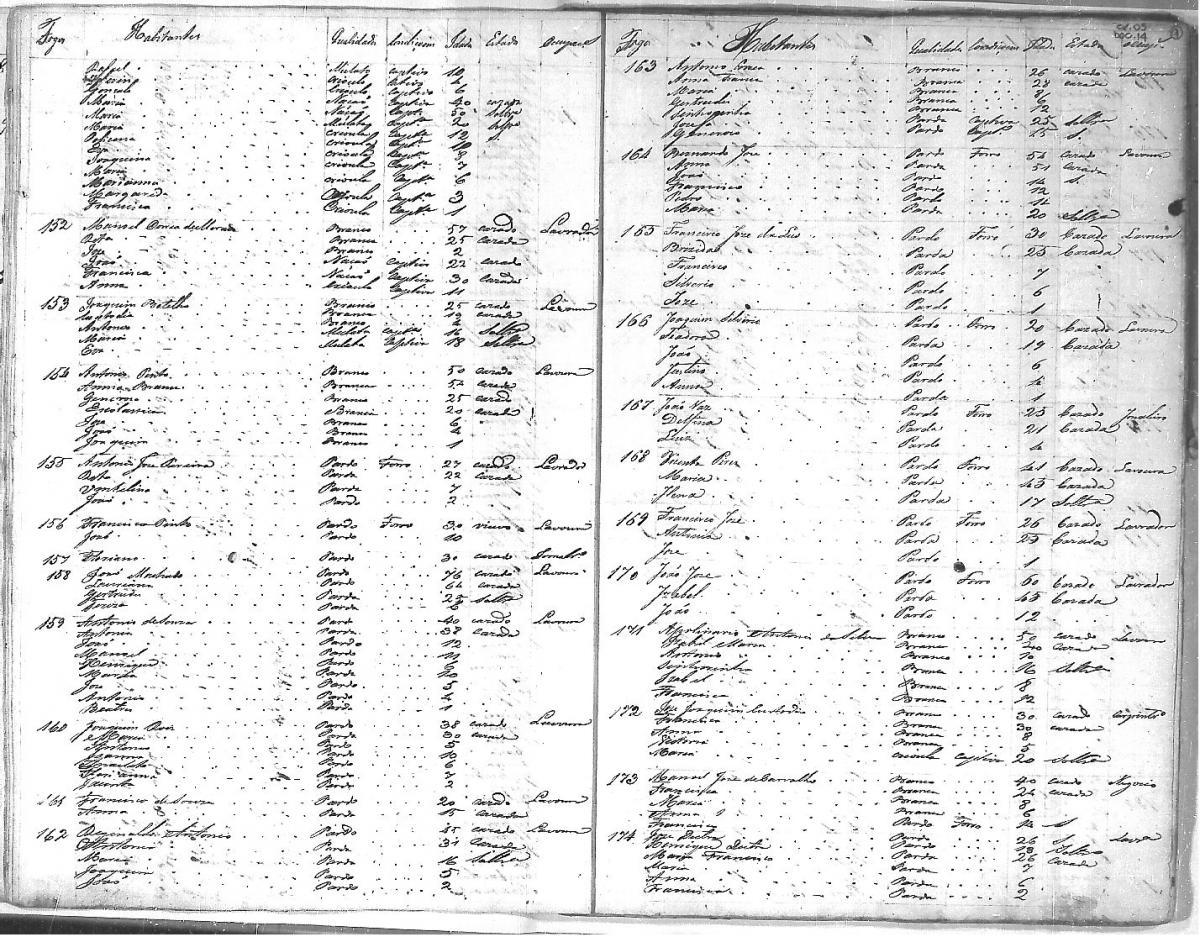 Fogos Habitantes Qualidade Condicam Idade Estado Ocupac.
Rafael Mulato captivo 10
Criolo captivo 8
Gonçalo Criolo captivo 6
Maria Nação captiva 40 cazada
Maria Nação Capt.a 50 Soltra
Maria Mulata Capt.a 20 Soltra
Criola Capt.a 12 S.
Eva Criola Capt.a 10
Joaquina Criola Capt.a 8
Maria Criola Capt.a 7
Marianna Criola Capt.a 6
Margarida Criola Capt.a 3
Francisca Criola Capt.a 1
152 Manoel Correa de Morais Branco 57 cazado Lavrador
Rita Branca 25 cazada
Branco 2
José Nação captivo 22 cazad
Francisca Nação captiva 30 cazada
Anna Criola captiva 11
153 Joaquim Botelho Branco 25 cazado Lavoura
Custodia Branca 19 cazada
Antonio Branco
Maria Mulata capt.a 16 Soltra
Eva Mulata captiva 18 Soltra
154 Antonio Pinto Branco 50 cazado Lavoura
Anna Branca Branca 54 cazada
Generoso Branco 25 cazado
Escolastica Branca 20 cazada
Joze Branco 6
João Branco 4
Joaquim Branco 1
155 Antonio Joze Pereira Pardo Forro 27 cazado Lavrador
Rita Parda 22 cazada
Pardo 7
João Pardo 2
156 Francisco Pinto Pardo Forro 30 viuvo Lavoura
José Pardo 10
157 Floriano Pardo 30 cazado Jornalr.o
158 José Machado Pardo 76 cazado Lavoura
Parda 64 cazada
Gertrudes Parda 25 Soltra
Parda 6
159 Antonio de Souza Pardo 40 cazado Lavoura
Antonia Parda 38 cazada
João Pardo 12
Manoel Pardo 11
Henrique Pardo 9
Maria Parda 10
Joze Pardo 5
Antonio Pardo 4
Beatris Parda 1
160 Joaquim Dias Pardo 38 cazado Lavoura
Maria Parda 30 cazada
Antonio Pardo 5
Pardo 10
Pardo 6
Parda 7
Vicente Pardo 2
161 Francisco de Souza Pardo 20 cazado Lavoura
Anna Parda 15 cazada
162 Reginaldo Antonio Pardo 45 cazado Lavoura
Antonia Parda 31 cazada
Maria Parda 16 Soltra
Joaquim Pardo 5
João Pardo 2
CX.05
DOC.14
Fogo Habitantes Qualidade Condicam Idade Estado
163 Antonio Correa Branco 26 cazado Lavoura
Anna Franca Branca 28 cazada
Maria Branca 8
Gertrudes Branca 6
Branca 12
Josefa Parda captiva 25 Soltra
Generoso Pardo Capt.o 15 S.
164 Bernardo Joze Pardo Forro 54 cazado Lavoura
Anna Parda 51 cazada
João Pardo 14 S.
Francisco Pardo 12
Pedro Pardo 14
Maria Parda 20 Soltra
165 Francisco Joze da Luis Pardo Forro 30 Cazado Lavoura
Brizida Parda 25 Cazada
Francisco Pardo 7
Silverio Pardo 6
Joze Pardo 1
166 Joaquim Silverio Pardo Forro 20 Cazado Lavoura
Izadora Parda 19 Cazada
João Pardo 6
Justino Pardo 4
Anna Parda 1
167 João Vaz Pardo Forro 25 Cazado Jornaleiro
Delfina Parda 21 Cazada
Luiz Pardo 4
168 Vicente Perez Pardo Forro 41 Cazado Lavoura
Maria Parda 45 Cazada
Ilena Parda 17 Soltra
169 Francisco Joze Pardo Forro 26 Cazado Lavrador
Antonia Parda 25 Cazada
Joze Pardo 1
170 João Joze Pardo Forro 60 Cazado Lavrador
Izabel Parda 45 Cazada
João Pardo 12
171 Apolinario Antonio da Silva Branco 50 cazado Lavoura
Izabel Maria Branca 40 cazada
Antonio Branco
Branca 16 Soltra
Izabel Branca 8
Francisca Branca 12
172 Joze Joaquim Custodio Branco 30 cazado Carpintr.o
Branca 30 cazada
Anna Branca 8
Branca 5
Maria Criola captiva 20 Soltra
173 Manoel Joze de Carvalho Branco 40 cazado Negocio
Francisca Branca 24 cazada
Maria Branca 8
Anna Branca 6
Francisco Pardo Forro 14 S
174 Joze Dutra Pardo 26 S Lavrdr
Henrique Dutra Pardo 18 Soltro
Maria Francisca Parda 26 Cazada
Maria Parda 7
Anna Parda 6
Francisca Parda 2